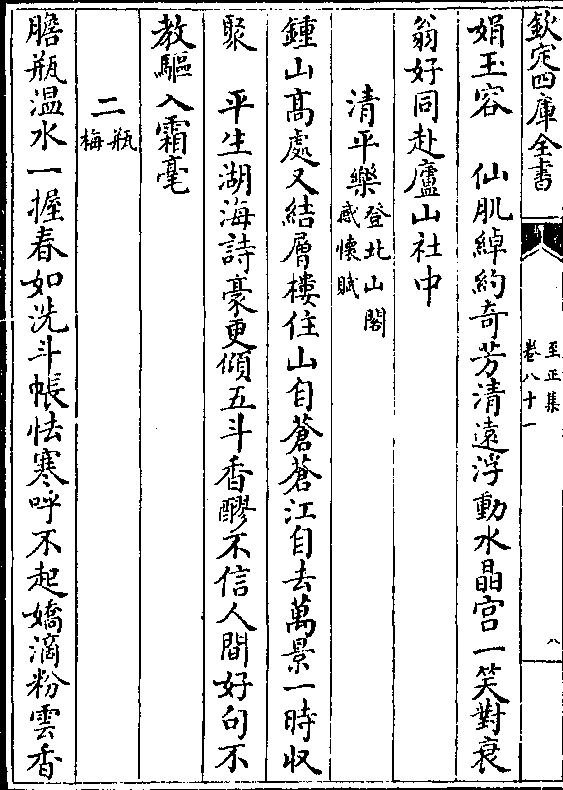 欽定四庫全書
至正集
卷八十一
八
娟玉容　仙肌綽約奇芳清遠浮動水晶宫一笑對衰
翁好同赴廬山社中
清平樂登北山閣感懷賦
鍾山高處又結層樓住山自蒼蒼江自去萬景一時収
聚　平生湖海詩豪更傾五斗香醪不信人間好句不
教驅入霜毫
二瓶梅
膽瓶温水一握春如洗斗帳怯寒呼不起嬌滴粉雲香